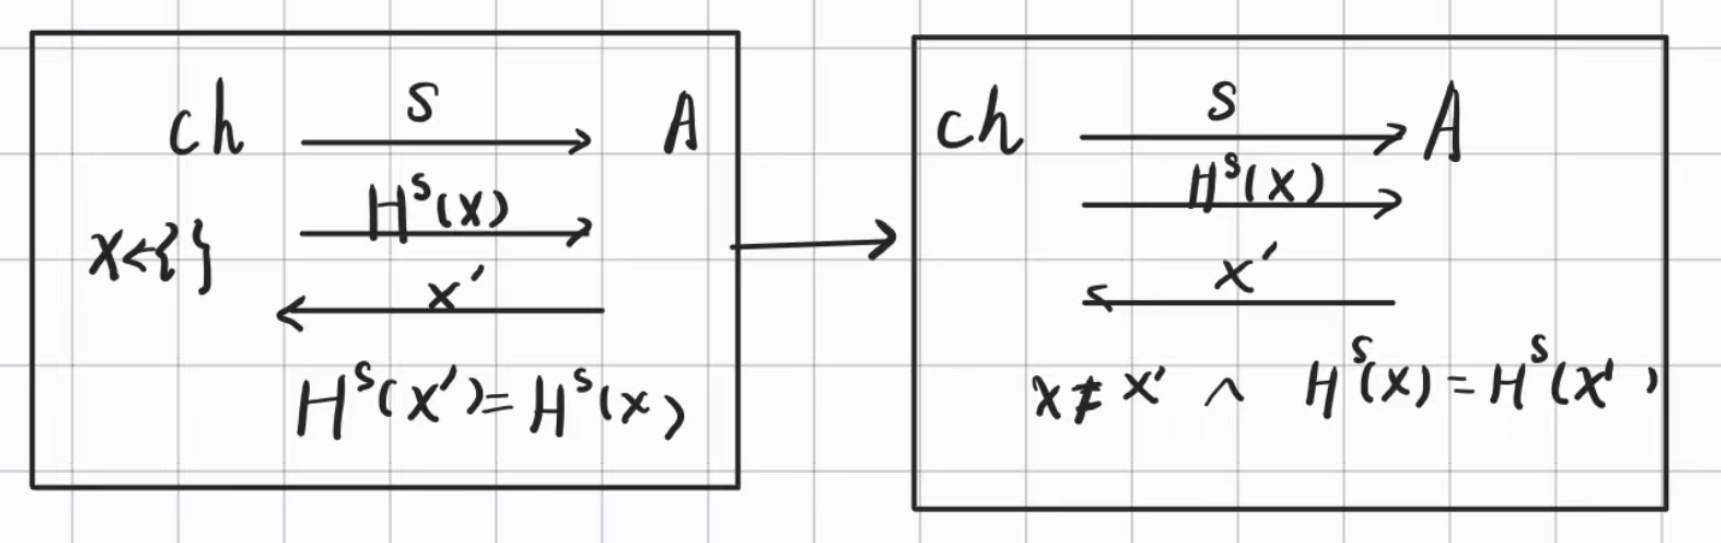 ch S A
H^s(x)
x←{}
x'
H^s(x')=H^s(x)
ch S A
H^s(x)
x'
x≠x' ∧ H^s(x)=H^s(x')